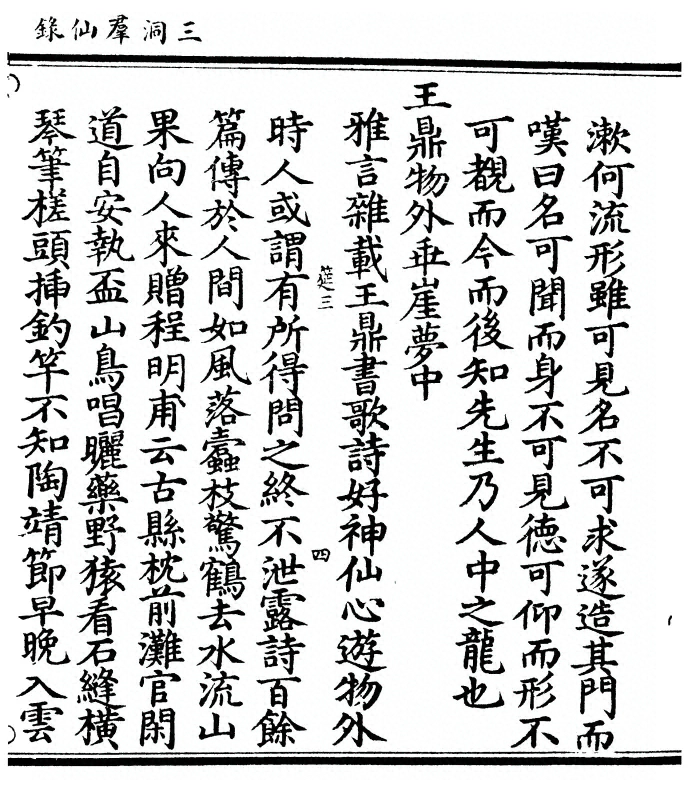 三洞羣仙錄
漱何流形雖可見名不可求遂造其門而
嘆曰名可聞而身不可見德可仰而形不
可覩而今而後知先生乃人中之龍也
王鼎物外乖崖夢中
雅言雜載王鼎書歌詩好神仙心遊物外
筵三
四
時人或謂有所得問之終不泄露詩百餘
篇傳於人間如風落蠹枝驚鶴去水流山
果向人來贈程明甫云古縣枕前灘官閑
道自安執盃山鳥唱曬藥野猿看石縫橫
琴筆槎頭揷釣竿不知陶靖節早晚入雲